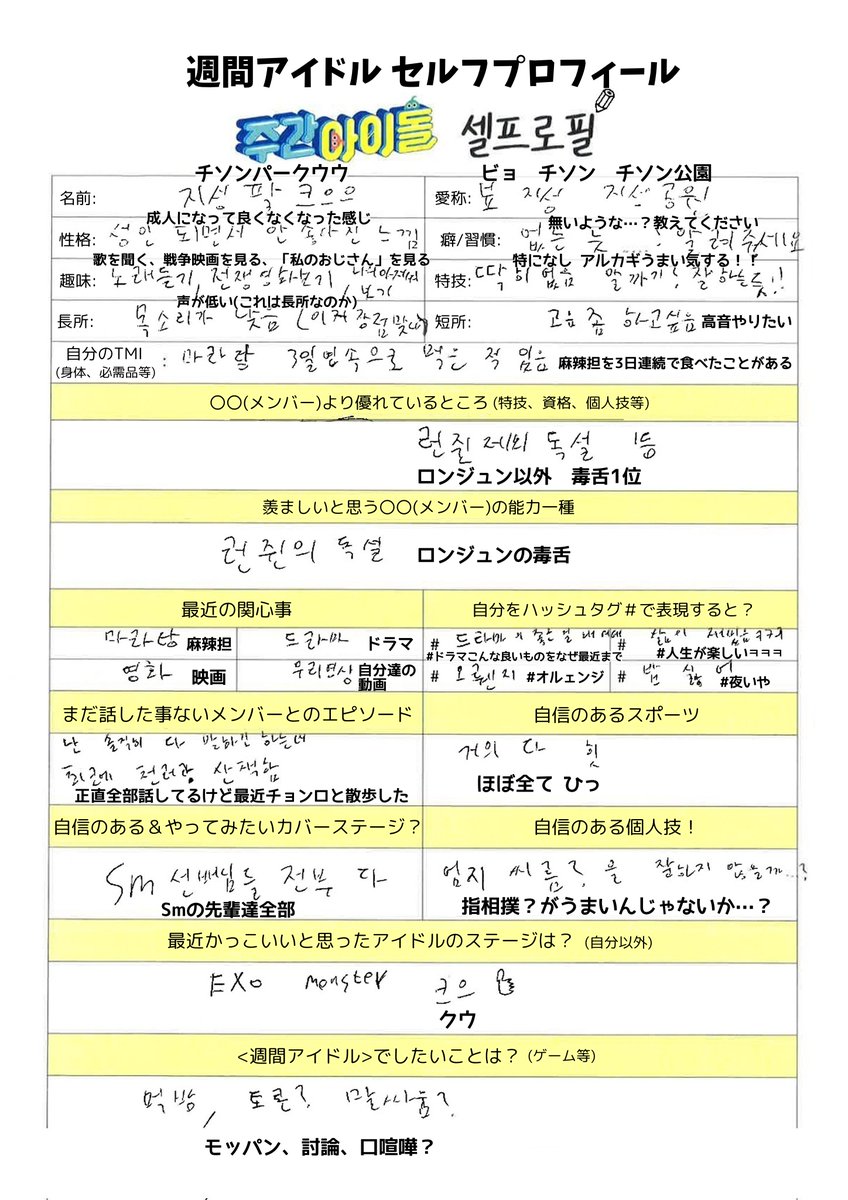 週間アイドル セルフプロフィール
주간아이돌 셀프로필
チソンパークウウ
ピョ チソン チソン公園
名前: 지성 팍 크으으
愛称: 뾰 지성 지성 공원
成人になって良くなくなった感じ
無いような…?教えてください
性格: 성인 되면서 안 좋아진 느낌
癖/習慣: 없는 듯...? 알려주세요
歌を聞く、戦争映画を見る、「私のおじさん」を見る
特になし アルカギうまい気する!!
趣味: 노래듣기, 전쟁영화보기, 나의아저씨 보기
特技: 딱히 없음 알까기! 잘하는듯!!
声が低い(これは長所なのか)
長所: 목소리가 낮음 (이거 장점맞나)
短所: 고음 좀 하고싶음 高音やりたい
自分のTMI : 마라탕 3일연속으로 먹은 적 있음 麻辣担を3日連続で食べたことがある
(身体、必需品等)
〇〇(メンバー)より優れているところ (特技、資格、個人技等)
런쥔 제외 독설 1등
ロンジュン以外 毒舌1位
羨ましいと思う〇〇(メンバー)の能力一種
런쥔의 독설 ロンジュンの毒舌
最近の関心事
自分をハッシュタグ#で表現すると?
마라탕 麻辣担
드라마 ドラマ
# 드라마 이 좋은 걸 왜 이제
#ドラマこんな良いものをなぜ最近まで
# 삶이 재밌음 ㅋㅋㅋ
#人生が楽しいㅋㅋㅋ
영화 映画
우리영상 自分達の動画
# 오렌지 #オルェンジ
# 밤 싫어 #夜いや
まだ話した事ないメンバーとのエピソード
自信のあるスポーツ
난 솔직히 다 말하긴 하는데
최근에 천러랑 산책함
正直全部話してるけど最近チョンロと散歩した
거의 다 힛
ほぼ全て ひっ
自信のある&やってみたいカバーステージ?
自信のある個人技!
Sm 선배님들 전부 다
Smの先輩達全部
엄지 씨름?을 잘하지 않을까...?
指相撲?がうまいんじゃないか…?
最近かっこいいと思ったアイドルのステージは? (自分以外)
EXO monster 크으
クウ
<週間アイドル>でしたいことは? (ゲーム等)
먹방, 토론? 말싸움?
モッパン、討論、口喧嘩?